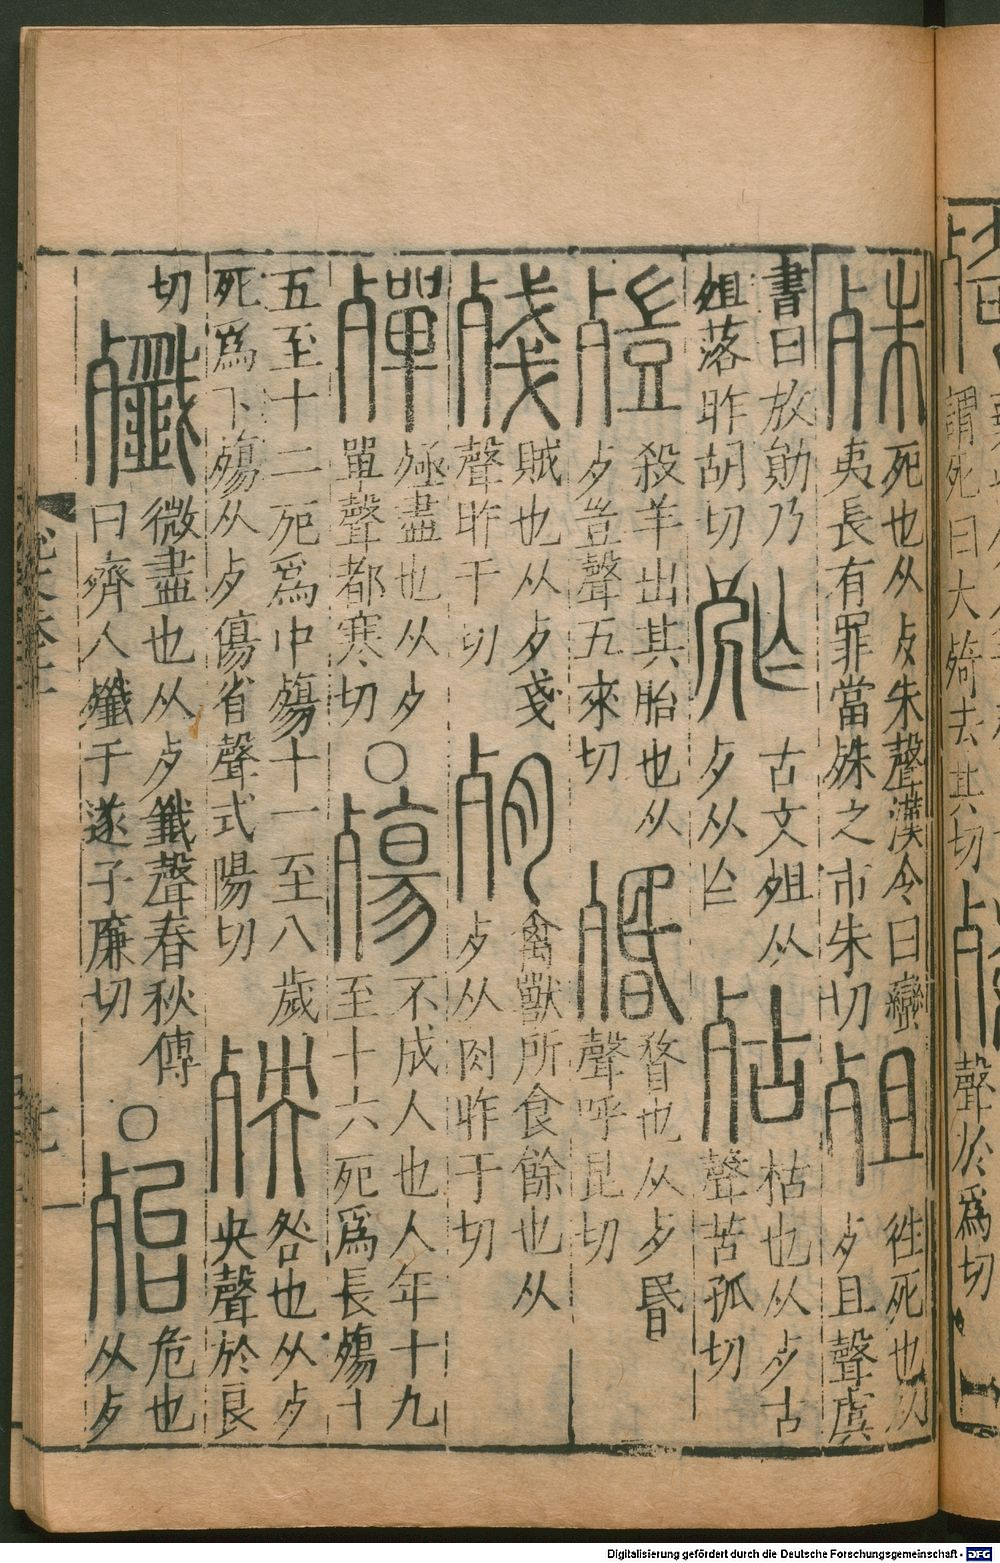 謂死曰大
去其切
聲於爲切
殊
死也从歺朱聲漢令曰蠻
夷長有罪當殊之市朱切
殂
徃死也
歺且聲虞
書曰放勛乃
殂落昨胡切
古文殂从
歺从亼
𣧷
枯也从歺古
聲苦孤切
𣩄
殺羊出其胎也从
歺豈聲五來切
殙
瞀也从歺昬
聲呼昆切
殘
賊也从歺戔
聲昨干切
𣦼
禽獸所食餘也从
歺从肉昨干切
殫
殛盡也从歺
單聲都寒切
○
殤
不成人也人年十九
至十六死爲長殤十
五至十二死爲中殤十一至八歲
死爲下殤从歺傷省聲式陽切
殃
咎也从歺
央聲於良
切
殲
微盡也从歺韱聲春秋傳
曰齊人殲于遂子廉切
○
殆
危也
从歺
Digitalisierung gefördert durch die Deutsche Forschungsgemeinschaft - DFG